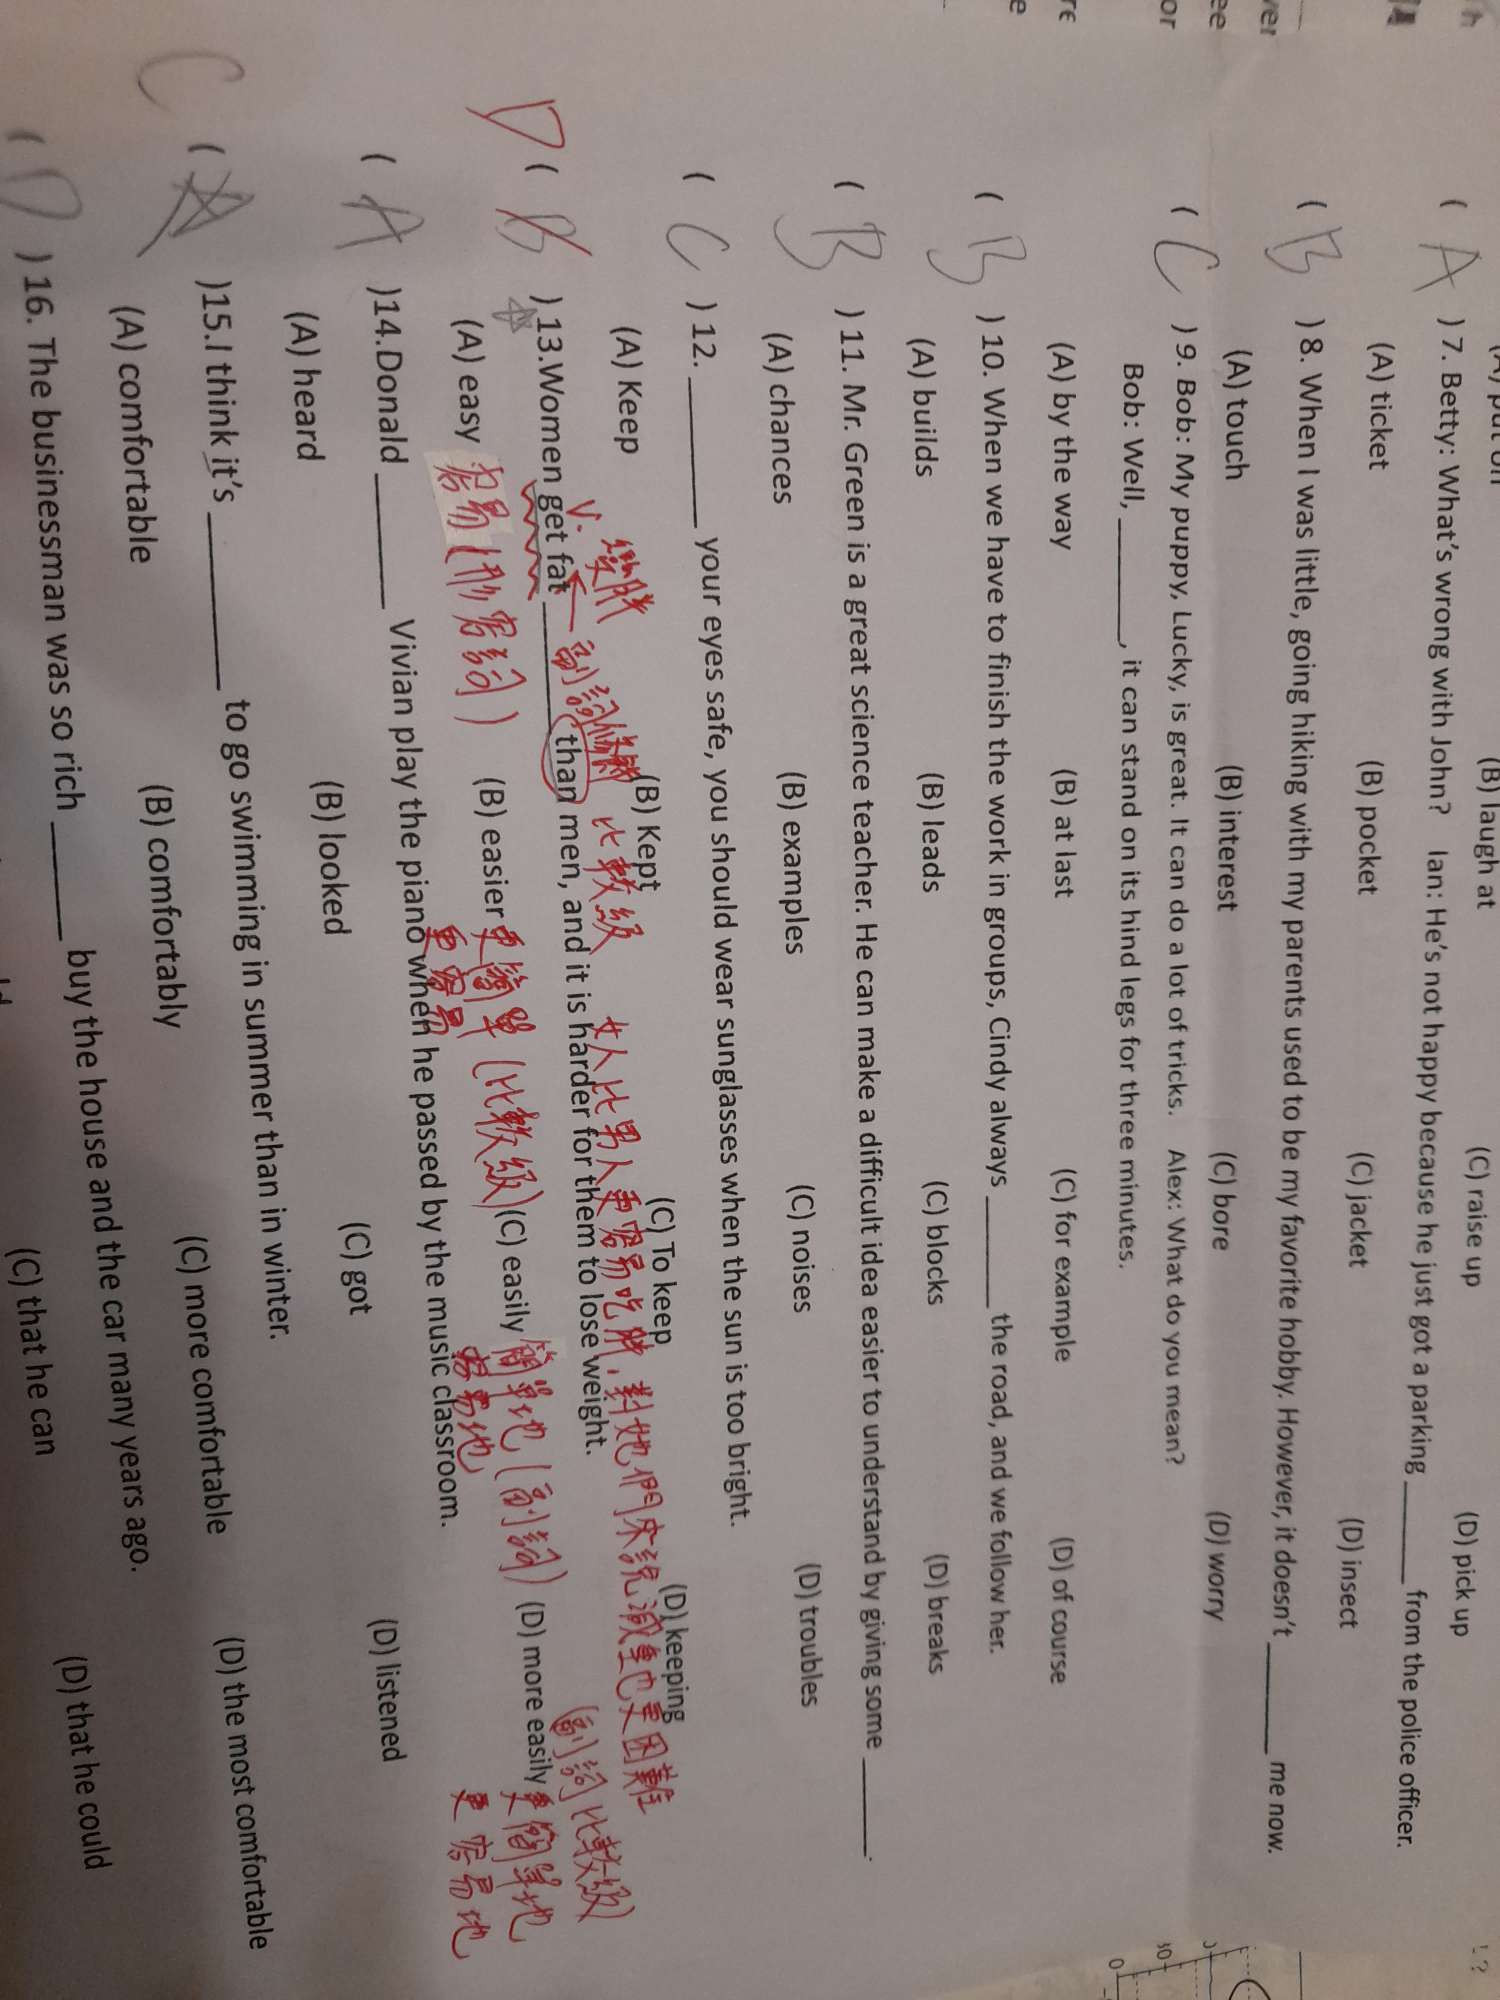 (B) laugh at (C) raise up (D) pick up
( A ) 7. Betty: What's wrong with John? Ian: He's not happy because he just got a parking ______ from the police officer.
(A) ticket (B) pocket (C) jacket (D) insect
( B ) 8. When I was little, going hiking with my parents used to be my favorite hobby. However, it doesn't ______ me now.
(A) touch (B) interest (C) bore (D) worry
( C ) 9. Bob: My puppy, Lucky, is great. It can do a lot of tricks. Alex: What do you mean?
Bob: Well, ______, it can stand on its hind legs for three minutes.
(A) by the way (B) at last (C) for example (D) of course
( B ) 10. When we have to finish the work in groups, Cindy always ______ the road, and we follow her.
(A) builds (B) leads (C) blocks (D) breaks
( B ) 11. Mr. Green is a great science teacher. He can make a difficult idea easier to understand by giving some ______.
(A) chances (B) examples (C) noises (D) troubles
( C ) 12. ______ your eyes safe, you should wear sunglasses when the sun is too bright.
(A) Keep (B) Kept (C) To keep (D) keeping
V. 變胖 副詞 比較級 女人比男人更容易吃胖,對她們來說減重也更困難
D ( B ) 13.Women get fat ______ than men, and it is harder for them to lose weight.
(副詞比較級)
(A) easy 容易(形容詞) (B) easier 更簡單(比較級) (C) easily 簡單地(副詞) (D) more easily 更簡單地
更容易 容易地 更容易地
( A )14.Donald ______ Vivian play the piano when he passed by the music classroom.
(A) heard (B) looked (C) got (D) listened
C ( A )15.I think it's ______ to go swimming in summer than in winter.
(A) comfortable (B) comfortably (C) more comfortable (D) the most comfortable
( D ) 16. The businessman was so rich ______ buy the house and the car many years ago.
(C) that he can (D) that he could